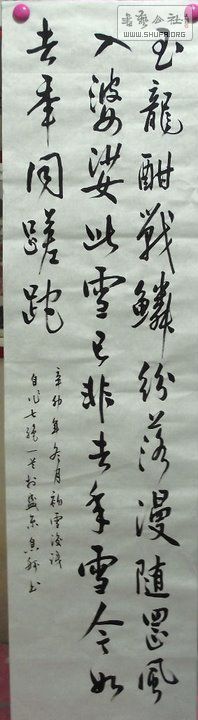 书艺公社
WWW.SHUFA.ORG
玉龍酣戰鱗紛落漫隨罡風
入婆娑此雪已非去年雪今如
去年同蹉跎
辛卯年冬月初雪後
自作七絕一首於盛京